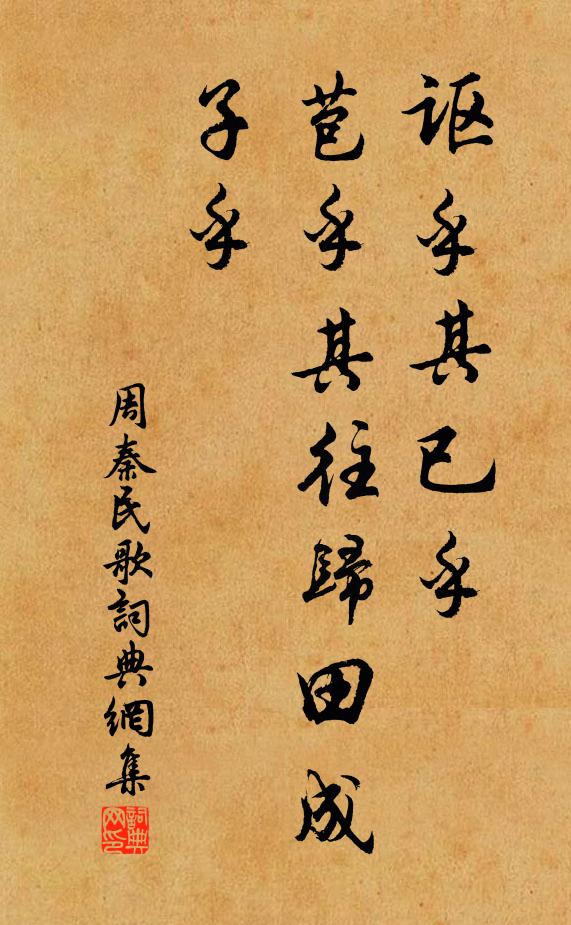 讴乎其已乎
苞乎其往歸田成
子乎
周秦民歌詞典網集
詞典网印